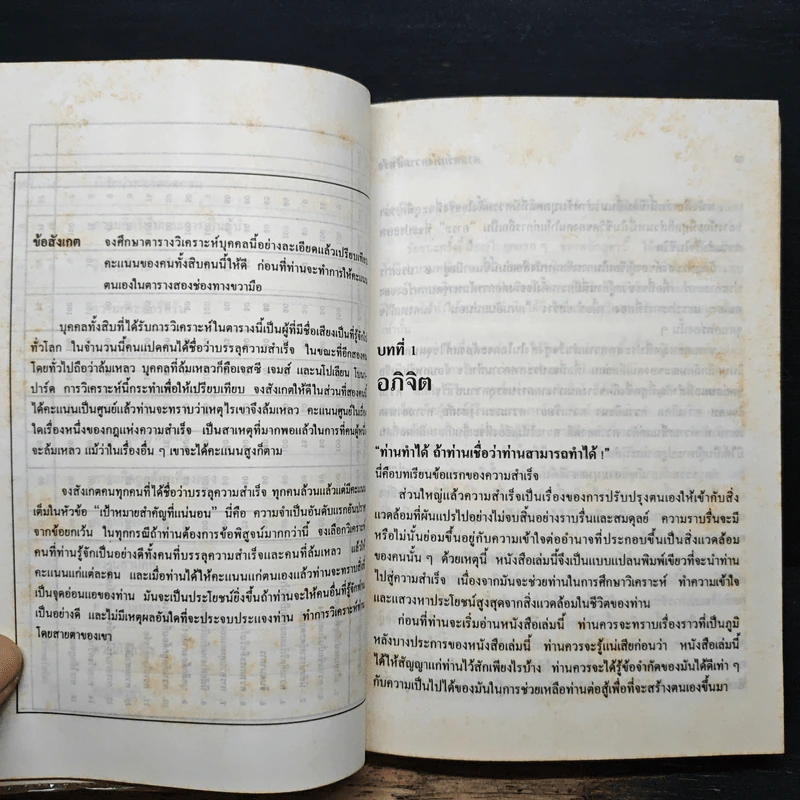 ข้อสังเกต จงศึกษาตารางวิเคราะห์บุคคลนี้อย่างละเอียดแล้วเปรียบเทียบ
คะแนนของคนทั้งสิบคนนี้ให้ดี ก่อนที่ท่านจะทำการให้คะแนน
ตนเองในตารางสองช่องทางขวามือ
บุคคลทั้งสิบที่ได้รับการวิเคราะห์ในตารางนี้เป็นผู้ที่มีชื่อเสียงเป็นที่รู้จัก
ทั่วโลก ในจำนวนนี้คนแปดคนได้ชื่อว่าบรรลุความสำเร็จ ในขณะที่อีกสองคน
โดยทั่วไปถือว่าล้มเหลว บุคคลที่ล้มเหลวก็คือเจสซี เจมส์ และนโปเลียน
ปาร์ต การวิเคราะห์นี้กระทำเพื่อให้เปรียบเทียบ จงสังเกตให้ดีในส่วนที่สองคนนี้
ได้คะแนนเป็นศูนย์แล้วท่านจะทราบว่าเหตุไรเขาจึงล้มเหลว คะแนนศูนย์ใน
ใดเรื่องหนึ่งของกฎแห่งความสำเร็จ เป็นสาเหตุที่มากพอแล้วในการที่คนผู้
จะล้มเหลว แม้ว่าในเรื่องอื่น ๆ เขาจะได้คะแนนสูงก็ตาม
จงสังเกตคนทุกคนที่ได้ชื่อว่าบรรลุความสำเร็จ ทุกคนล้วนแล้วแต่มีคะแนน
เต็มในหัวข้อ “เป้าหมายสำคัญที่แน่นอน” นี่คือ ความจำเป็นอันดับแรกอัน
จากข้อยกเว้น ในทุกกรณีถ้าท่านต้องการข้อพิสูจน์มากกว่านี้ จงเลือกวิเคราะห์
คนที่ท่านรู้จักเป็นอย่างดีทั้งคนที่บรรลุความสำเร็จและคนที่ล้มเหลว แล้ว
คะแนนแก่แต่ละคน และเมื่อท่านได้ให้คะแนนแก่ตนเองแล้วท่านจะทราบ
เป็นจุดอ่อนแอของท่าน มันจะเป็นประโยชน์ยิ่งขึ้นถ้าท่านจะให้คนอื่นที่รู้จัก
เป็นอย่างดี และไม่มีเหตุผลอันใดที่จะประจบประแจงท่าน ทำการวิเคราะห์
โดยสายตาของเขา
บทที่ 1
อภิจิต
“ท่านทำได้ ถ้าท่านเชื่อว่าท่านสามารถทำได้ !”
นี่คือบทเรียนข้อแรกของความสำเร็จ
ส่วนใหญ่แล้วความสำเร็จเป็นเรื่องของการปรับปรุงตนเองให้เข้ากับสิ่ง
แวดล้อมที่ผันแปรไปอย่างไม่จบสิ้นอย่างราบรื่นและสมดุลย์ ความราบรื่นจะมี
หรือไม่นั้นย่อมขึ้นอยู่กับความเข้าใจต่ออำนาจที่ประกอบขึ้นเป็นสิ่งแวดล้อม
ของคนนั้น ๆ ด้วยเหตุนี้ หนังสือเล่มนี้จึงเป็นแบบแปลนพิมพ์เขียวที่จะนำท่าน
ไปสู่ความสำเร็จ เนื่องจากมันจะช่วยท่านในการศึกษาวิเคราะห์ ทำความเข้าใจ
และแสวงหาประโยชน์สูงสุดจากสิ่งแวดล้อมในชีวิตของท่าน
ก่อนที่ท่านจะเริ่มอ่านหนังสือเล่มนี้ ท่านควรจะทราบเรื่องราวที่เป็นภูมิ
หลังบางประการของหนังสือเล่มนี้ ท่านควรจะรู้แน่เสียก่อนว่า หนังสือเล่มนี้
ได้ให้สัญญาแก่ท่านไว้สักเพียงไรบ้าง ท่านควรจะได้รู้ข้อจำกัดของมันได้ดีเท่า ๆ
กับความเป็นไปได้ของมันในการช่วยเหลือท่านต่อสู้เพื่อที่จะสร้างตนเองขึ้นมา